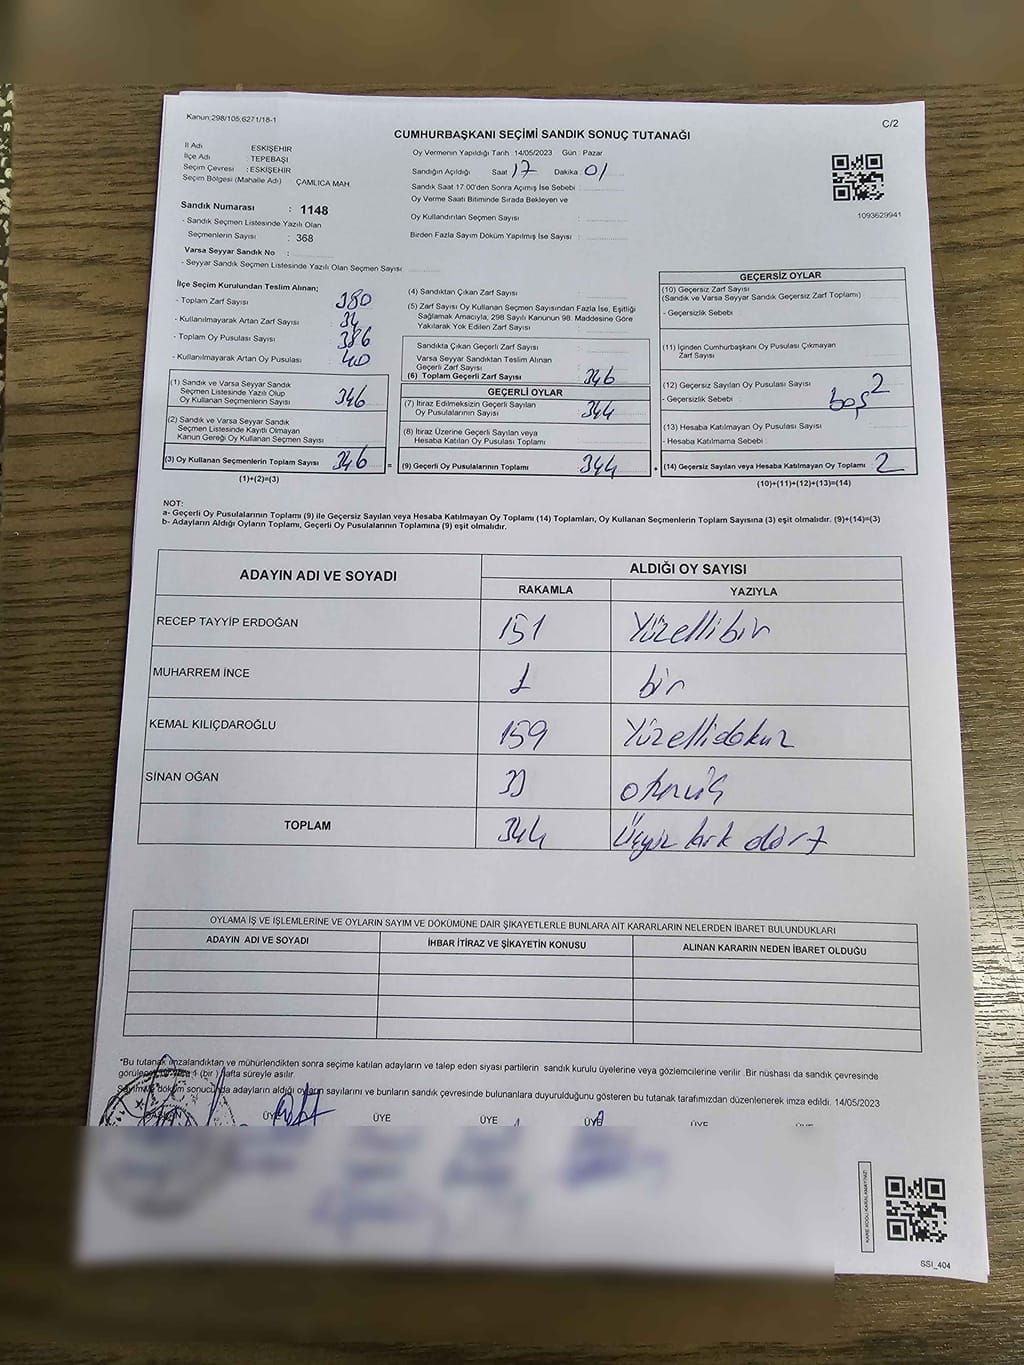 Kanun:298/105;6271/18-1
C/2
CUMHURBAŞKANI SEÇİMİ SANDIK SONUÇ TUTANAĞI
İl Adı ESKİŞEHİR
İlçe Adı : TEPEBAŞI
Seçim Çevresi : ESKİŞEHİR
Seçim Bölgesi (Mahalle Adı) ÇAMLICA MAH
Sandık Numarası : 1148
- Sandık Seçmen Listesinde Yazılı Olan
Seçmenlerin Sayısı : 368
Varsa Seyyar Sandık No :
- Seyyar Sandık Seçmen Listesinde Yazılı Olan Seçmen Sayısı
Oy Vermenin Yapıldığı Tarih :14/05/2023 Gün : Pazar
Sandığın Açıldığı Saat 17 Dakika 01
Sandık Saat 17.00'den Sonra Açımış İse Sebebi :
Oy Verme Saati Bitiminde Sırada Bekleyen ve
Oy Kullandırılan Seçmen Sayısı :
Birden Fazla Sayım Döküm Yapılmış İse Sayısı :
1093629941
İlçe Seçim Kurulundan Teslim Alınan;
- Toplam Zarf Sayısı 380
- Kullanılmayarak Artan Zarf Sayısı 34
- Toplam Oy Pusulası Sayısı 386
- Kullanılmayarak Artan Oy Pusulası 40
(1) Sandık ve Varsa Seyyar Sandık
Seçmen Listesinde Yazılı Olup
Oy Kullanan Seçmenlerin Sayısı 346
(2) Sandık ve Varsa Seyyar Sandık
Seçmen Listesinde Kayıtlı Olmayan
Kanun Gereği Oy Kullanan Seçmen Sayısı
(3) Oy Kullanan Seçmenlerin Toplam Sayısı 346
(1)+(2)=(3)
(4) Sandıktan Çıkan Zarf Sayısı :
(5) Zarf Sayısı Oy Kullanan Seçmen Sayısından Fazla İse, Eşitliği
Sağlamak Amacıyla, 298 Sayılı Kanunun 98. Maddesine Göre
Yakılarak Yok Edilen Zarf Sayısı
Sandıkta Çıkan Geçerli Zarf Sayısı :
Varsa Seyyar Sandıktan Teslim Alınan
Geçerli Zarf Sayısı :
(6) Toplam Geçerli Zarf Sayısı 346
GEÇERLİ OYLAR
(7) İtiraz Edilmeksizin Geçerli Sayılan
Oy Pusulalarının Sayısı 344
(8) İtiraz Üzerine Geçerli Sayılan veya
Hesaba Katılan Oy Pusulası Toplamı
= (9) Geçerli Oy Pusulalarının Toplamı 344
GEÇERSİZ OYLAR
(10) Geçersiz Zarf Sayısı
(Sandık ve Varsa Seyyar Sandık Geçersiz Zarf Toplamı)
- Geçersizlik Sebebi :
(11) İçinden Cumhurbaşkanı Oy Pusulası Çıkmayan
Zarf Sayısı
(12) Geçersiz Sayılan Oy Pusulası Sayısı 2
- Geçersizlik Sebebi : boş
(13) Hesaba Katılmayan Oy Pusulası Sayısı :
- Hesaba Katılmama Sebebi :
+ (14) Geçersiz Sayılan veya Hesaba Katılmayan Oy Toplamı 2
(10)+(11)+(12)+(13)=(14)
NOT:
a- Geçerli Oy Pusulalarının Toplamı (9) ile Geçersiz Sayılan veya Hesaba Katılmayan Oy Toplamı (14) Toplamları, Oy Kullanan Seçmenlerin Toplam Sayısına (3) eşit olmalıdır. (9)+(14)=(3)
b- Adayların Aldığı Oyların Toplamı, Geçerli Oy Pusulalarının Toplamına (9) eşit olmalıdır.
ADAYIN ADI VE SOYADI
ALDIĞI OY SAYISI
RAKAMLA YAZIYLA
RECEP TAYYİP ERDOĞAN 151 Yüzellibir
MUHARREM İNCE 1 bir
KEMAL KILIÇDAROĞLU 159 Yüzellidokuz
SİNAN OĞAN 33 otuzüç
TOPLAM 344 Üçyüz kırk dört
OYLAMA İŞ VE İŞLEMLERİNE VE OYLARIN SAYIM VE DÖKÜMÜNE DAİR ŞİKAYETLERLE BUNLARA AİT KARARLARIN NELERDEN İBARET BULUNDUKLARI
ADAYIN ADI VE SOYADI İHBAR İTİRAZ VE ŞİKAYETİN KONUSU ALINAN KARARIN NEDEN İBARET OLDUĞU
*Bu tutanak imzalandıktan ve mühürlendikten sonra seçime katılan adayların ve talep eden siyasi partilerin sandık kurulu üyelerine veya gözlemcilerine verilir. Bir nüshası da sandık çevresinde
1 (bir) hafta süreyle asılır.
döküm sonucunda adayların aldığı oyların sayılarını ve bunların sandık çevresinde bulunanlara duyurulduğunu gösteren bu tutanak tarafımızdan düzenlenerek imza edildi. 14/05/2023
BAŞKAN ÜYE ÜYE ÜYE ÜYE ÜYE
SSI_404